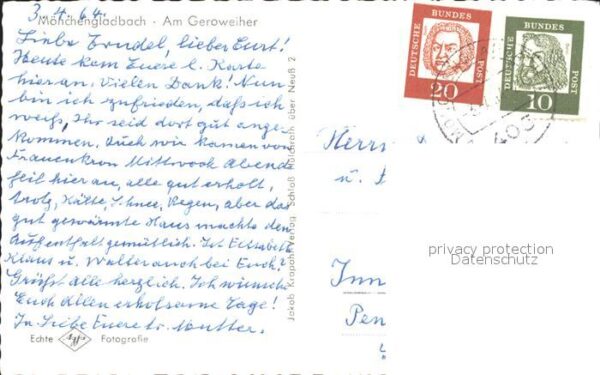 Mönchengladbach - Am Geroweiher
3.1.64.
Liebe Trudel, lieber Curt!
Heute kam Euere l. Karte
hier an. Vielen Dank! Nun
bin ich zufrieden, daß ich
weiß, Ihr seid dort gut ange-
kommen. Auch wir kamen von
Frauenkron Mittwoch Abend
heil hier an, alle gut erholt,
trotz Kälte, Schnee, Regen, aber das
gut gewärmte Haus machte den
Aufenthalt gemütlich. Ist Elisabeth
Klaus u. Walter auch bei Euch?
Grüßt alle herzlich. Ich wünsche
Euch allen erholsame Tage!
In Liebe Euere tr. Mutter.
Echte Agfa Fotografie
Jakob Krapohl-Verlag Schloß Hülchrath über Neuß 2
DEUTSCHE BUNDES POST
20
DEUTSCHE BUNDES POST
10
Herrn
u.
Inn
Pen
privacy protection
Datenschutz